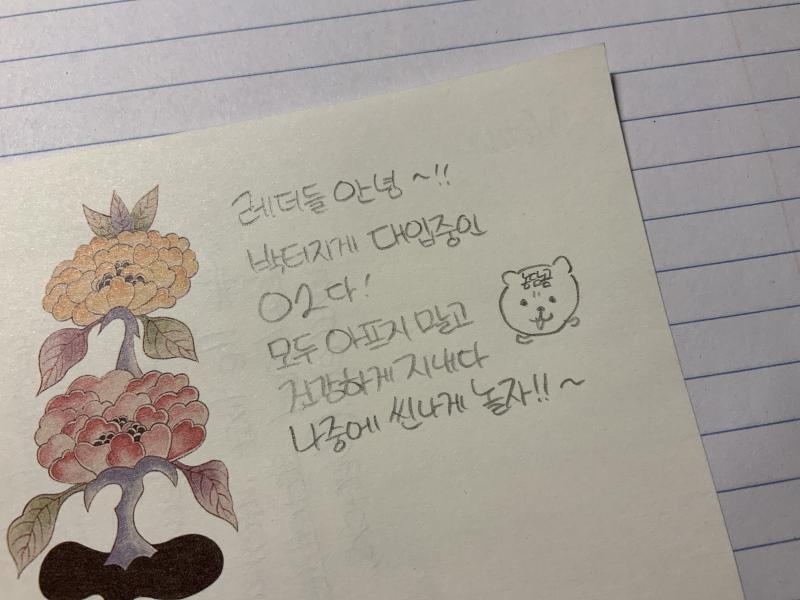 레더들 안녕 ~!!
박터지게 대입중인
O2다!
모두 아프지 말고
건강하게 지내다
나중에 씬나게 놀자!! ~
농담곰